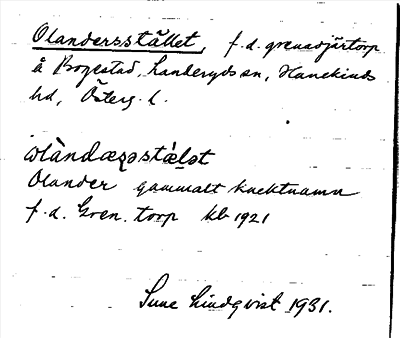 Olandersstället, f.d. grenadjärtorp
å Bogestad, Landeryds sn, Hanekinds
hd, Österg. l.
ωlàndæƞəstæ̀lət
Olander gammalt knektnamn
f.d. Gren. torp kb 1921
Sune Lindqvist 1931.